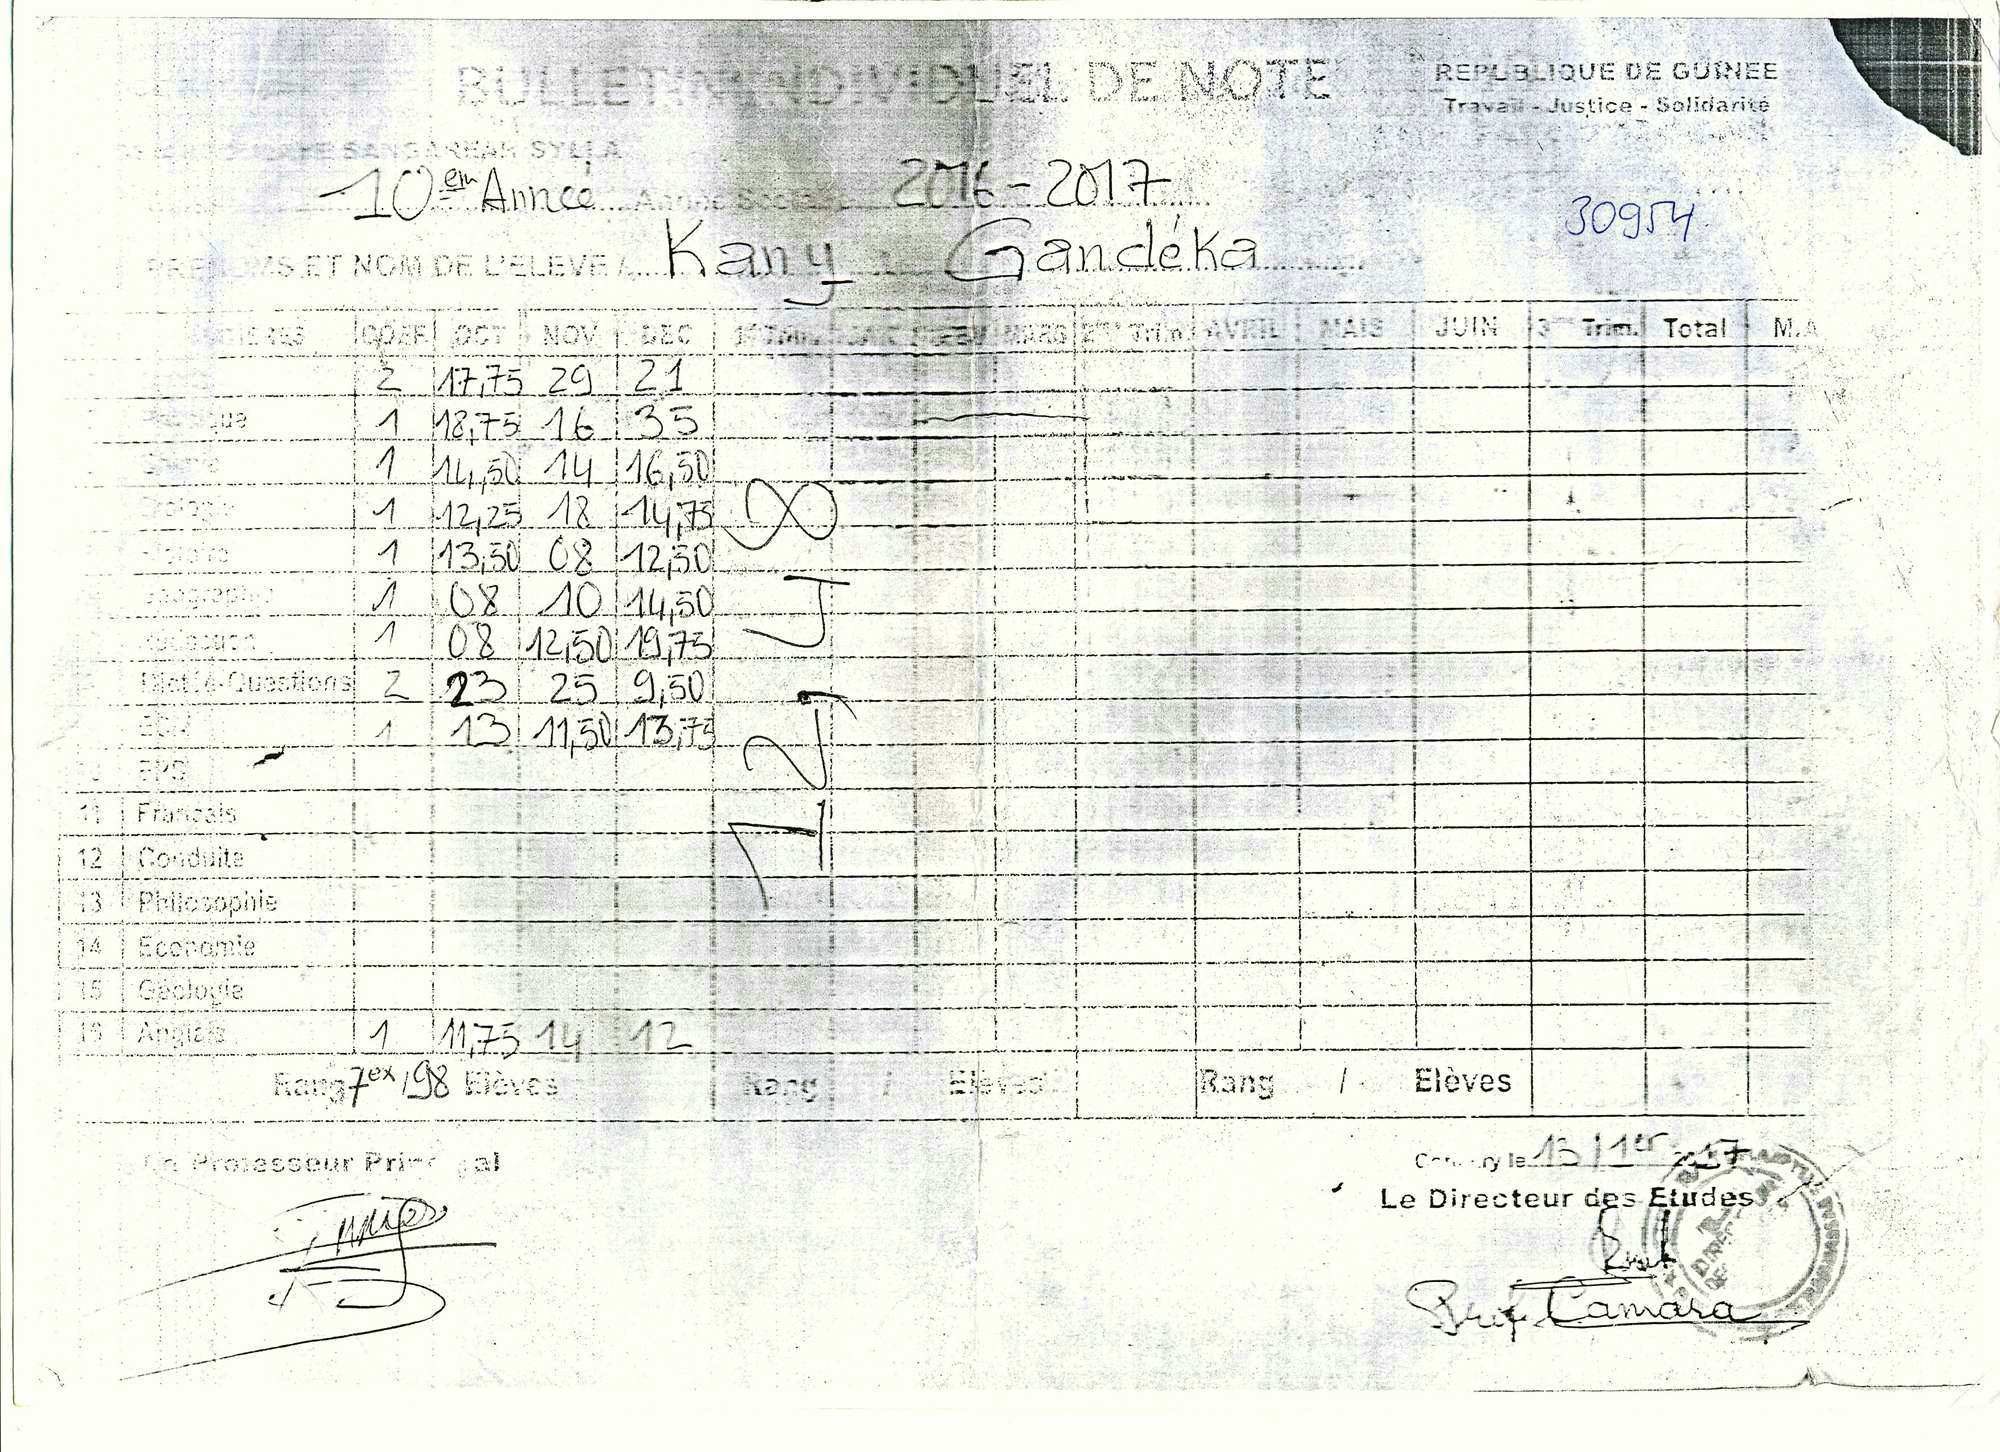 BULLETIN INDIVIDUEL DE NOTE
REPUBLIQUE DE GUINEE
Travail - Justice - Solidarité
SANGAREAH SYLLA
10em Année Année Scolaire 2016 - 2017
30954
PRENOMS ET NOM DE L'ELEVE Kany Gandéka
MATIERES COEF OCT NOV DEC 1er TRIM JANV FEV MARS 2ème Trim AVRIL MAIS JUIN 3ème Trim. Total M.A
2 17,75 29 21
1 18,75 16 35
Chimie 1 14,50 14 16,50
Biologie 1 12,25 18 14,75
Histoire 1 13,50 08 12,50
Géographie 1 08 10 14,50
Rédaction 1 08 12,50 19,75
Dictée-Questions 2 23 25 9,50
ECM 1 13 11,50 13,75
10 EPS
11 Francais
12 Conduite
13 Philosophie
14 Economie
15 Géologie
16 Anglais 1 11,75 14 12
Rang 7ex /98 Elèves Rang / Elèves Rang / Elèves
Le Professeur Principal
Conakry le 13/1er 2017
Le Directeur des Etudes
Prof Camara